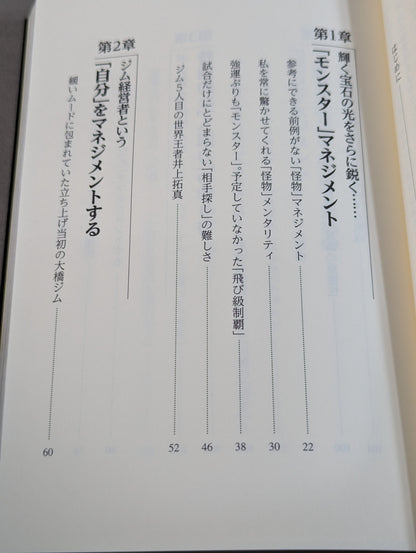 第1章
輝く宝石の光をさらに鋭く……
「モンスター」マネジメント
参考にできる前例がない「怪物」マネジメント 22
私を常に驚かせてくれる「怪物」メンタリティ 30
強運ぶりも「モンスター」？ 予定していなかった「飛び級制覇」 38
試合だけにとどまらない「相手探し」の難しさ 46
ジム5人目の世界王者井上拓真 52
第2章
ジム経営者という
「自分」をマネジメントする
緩いムードに包まれていた立ち上げ当初の大橋ジム 60